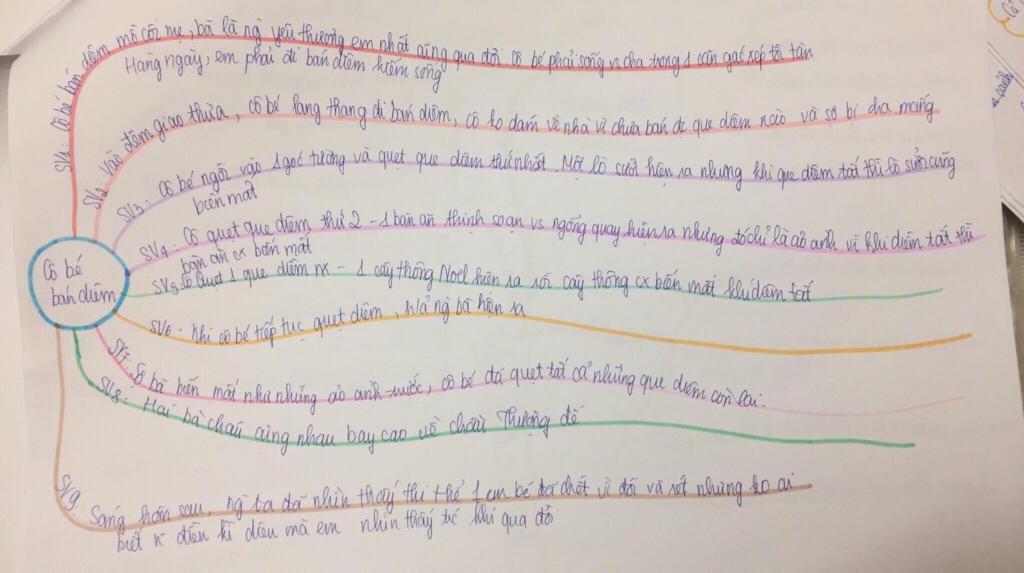 Cô bé bán diêm
SV1: Cô bé bán diêm mồ côi mẹ, bà là ng yêu thương em nhất cũng qua đời cô bé phải sống vs cha trong 1 căn gác xép tồi tàn
Hàng ngày, em phải đi bán diêm kiếm sống
SV2: Vào đêm giao thừa, cô bé lang thang đi bán diêm, cô ko dám về nhà vì chưa bán đc que diêm nào và sợ bị cha mắng
SV3: Cô bé ngồi vào 1 góc tường và quẹt que diêm thứ nhất. Một lò sưởi hiện ra nhưng khi que diêm tắt thì lò sưởi cũng
biến mất
SV4: Cô quẹt que diêm thứ 2 - 1 bàn ăn thịnh soạn vs ngỗng quay hiện ra nhưng đó chỉ là ảo ảnh vì khi diêm tắt thì
bàn ăn cx biến mất
SV5: Cô quẹt 1 que diêm nx - 1 cây thông Noel hiện ra rồi cây thông cx biến mất khi diêm tắt
SV6: Khi cô bé tiếp tục quẹt diêm, h/ả ng bà hiện ra
SV7: Sợ bà biến mất như những ảo ảnh trước, cô bé đã quẹt tất cả những que diêm còn lại.
SV8: Hai bà cháu cùng nhau bay cao về chầu Thượng đế
SV9: Sáng hôm sau, ng ta đã nhìn thấy thi thể 1 em bé đã chết vì đói và rét nhưng ko ai
biết n~ điều kì diệu mà em nhìn thấy trc khi qua đời